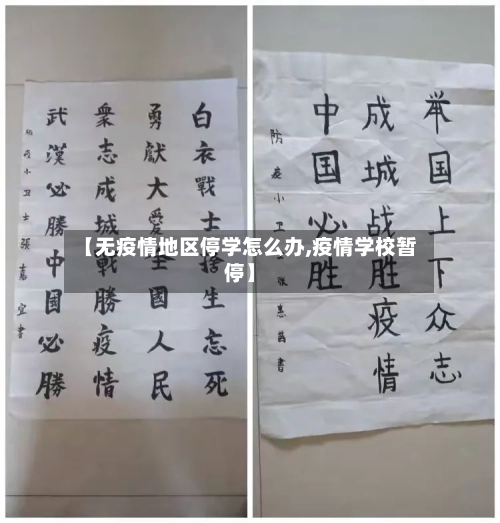 白衣戰士捨生忘死
勇獻大愛全國人民
衆志成城戰勝疫情
武漢必勝中國必勝
防疫小卫士張嘉宜書
举国上下众志
成城战胜疫情
中国必胜
防疫小卫
張
書
【无疫情地区停学怎么办,疫情学校暂
停】